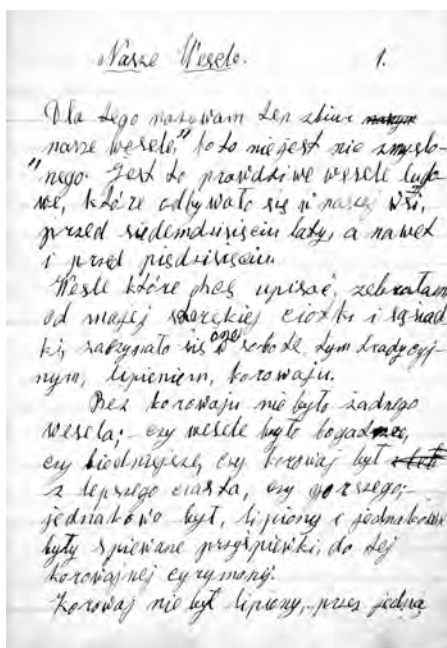 Nasze Wesele. 1.
Dla tego nazwałam ten zbiur
nasze wesele," bo to niejest nic zmyślo-
"nego. Jest to prawdziwe wesele ludo
we, które odbywało się w naszej wsi,
przed siedemdzisięciu laty, a nawet
i przed piędzisięciu
Wesle które chcę upisać, zebrałam
od mojej ciotki i sąsiad
ki, zaczynało się one w sobotę tym tradycyj-
nym, lipieniem, korowaju.
Bez korowaju nie było żadnego
wesela; czy wesele było bogadsze,
czy biedniejsze, czy korowaj był
z lepszego ciasta, czy gorszego;
jednakowo był, lipiony i jednakowe
były śpiewane przyśpiewki, do tej
korowajnej cyrymonji.
Korowaj nie był lipiony, przez jedną